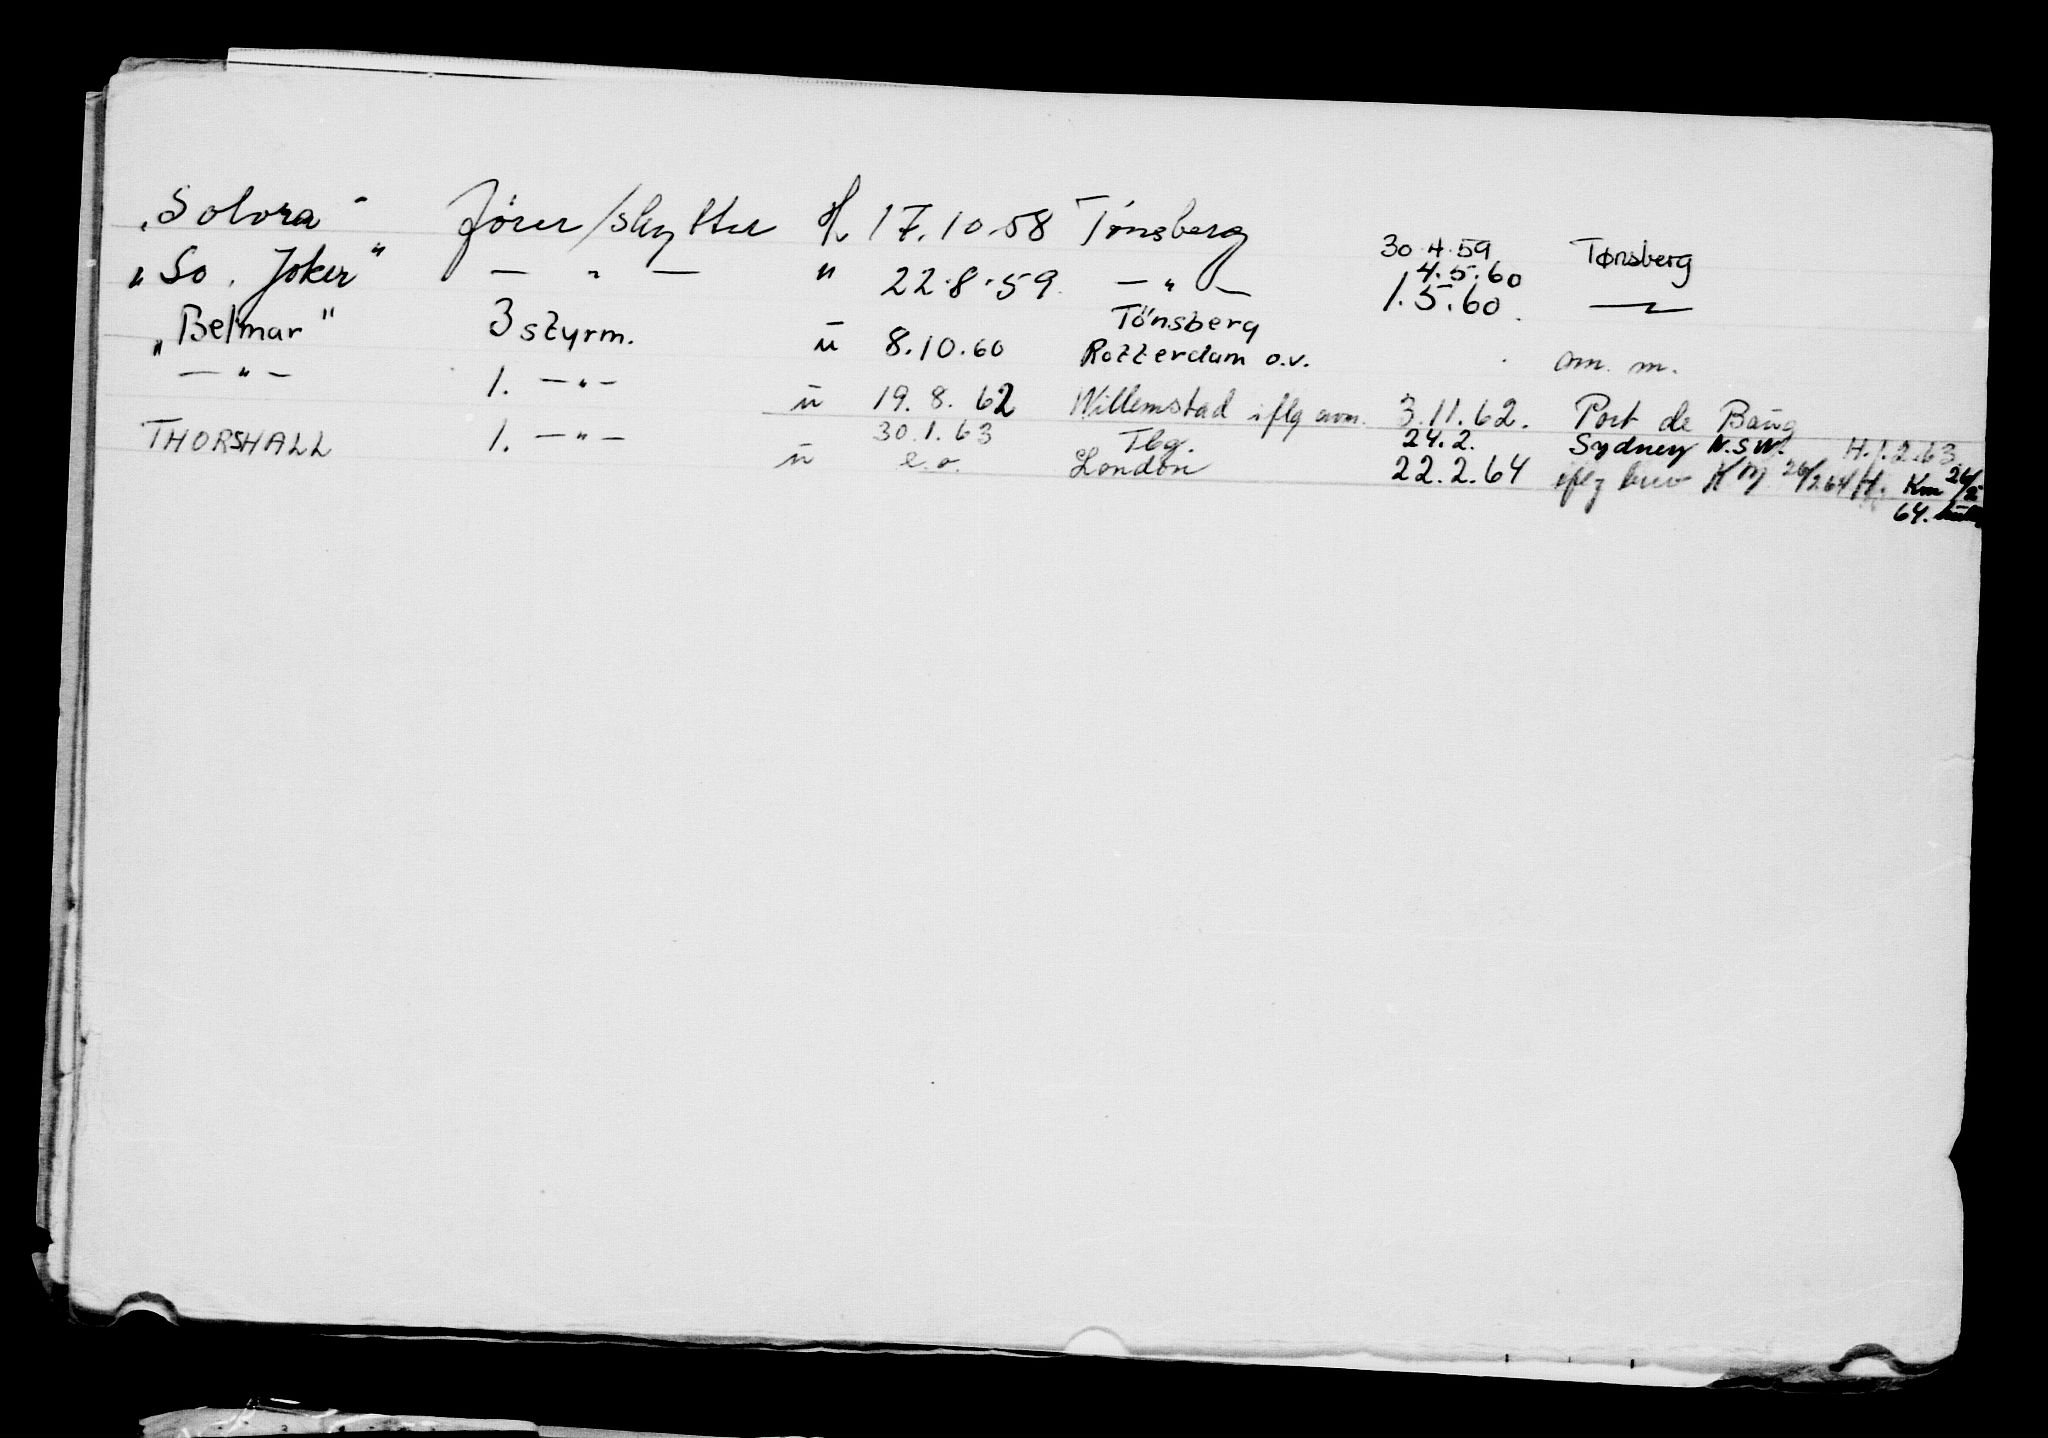 „Solvra" förer/skytter H 17.10.58 Tönsberg 30.4.59 Tønsberg
„So. Joker" — " — " 22.8.59 — " — 4.5.60 1.5.60
„Belmar" 3 styrm. u 8.10.60 Tönsberg Rotterdam o.v. am. m.
— " — 1. — " — u 19.8.62 Willemstad iflg avm. 3.11.62. Port de
THORSHALL 1. — " — u 30.1.63 Tbg. 24.2. Sydney N.S.W. H.1.2.63
e.o. London 22.2.64 iflg brev KM 26/2 64 H. Km 26/2
64.